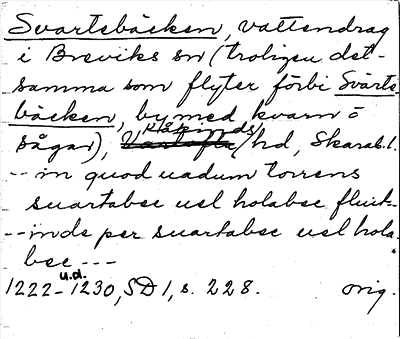 Svartebäcken, vattendrag
i Breviks sn (troligen det-
samma som flyter förbi Svarte-
bäcken, by med kvarn o
sågar), Kåkinds hd, Skarab. l.
-- in quod uadum torrens
suartabec uel holabec fluit -
-- inde per suartabec uel hola
bec ---
1222-1230, u.d. SD 1, s. 228. orig.